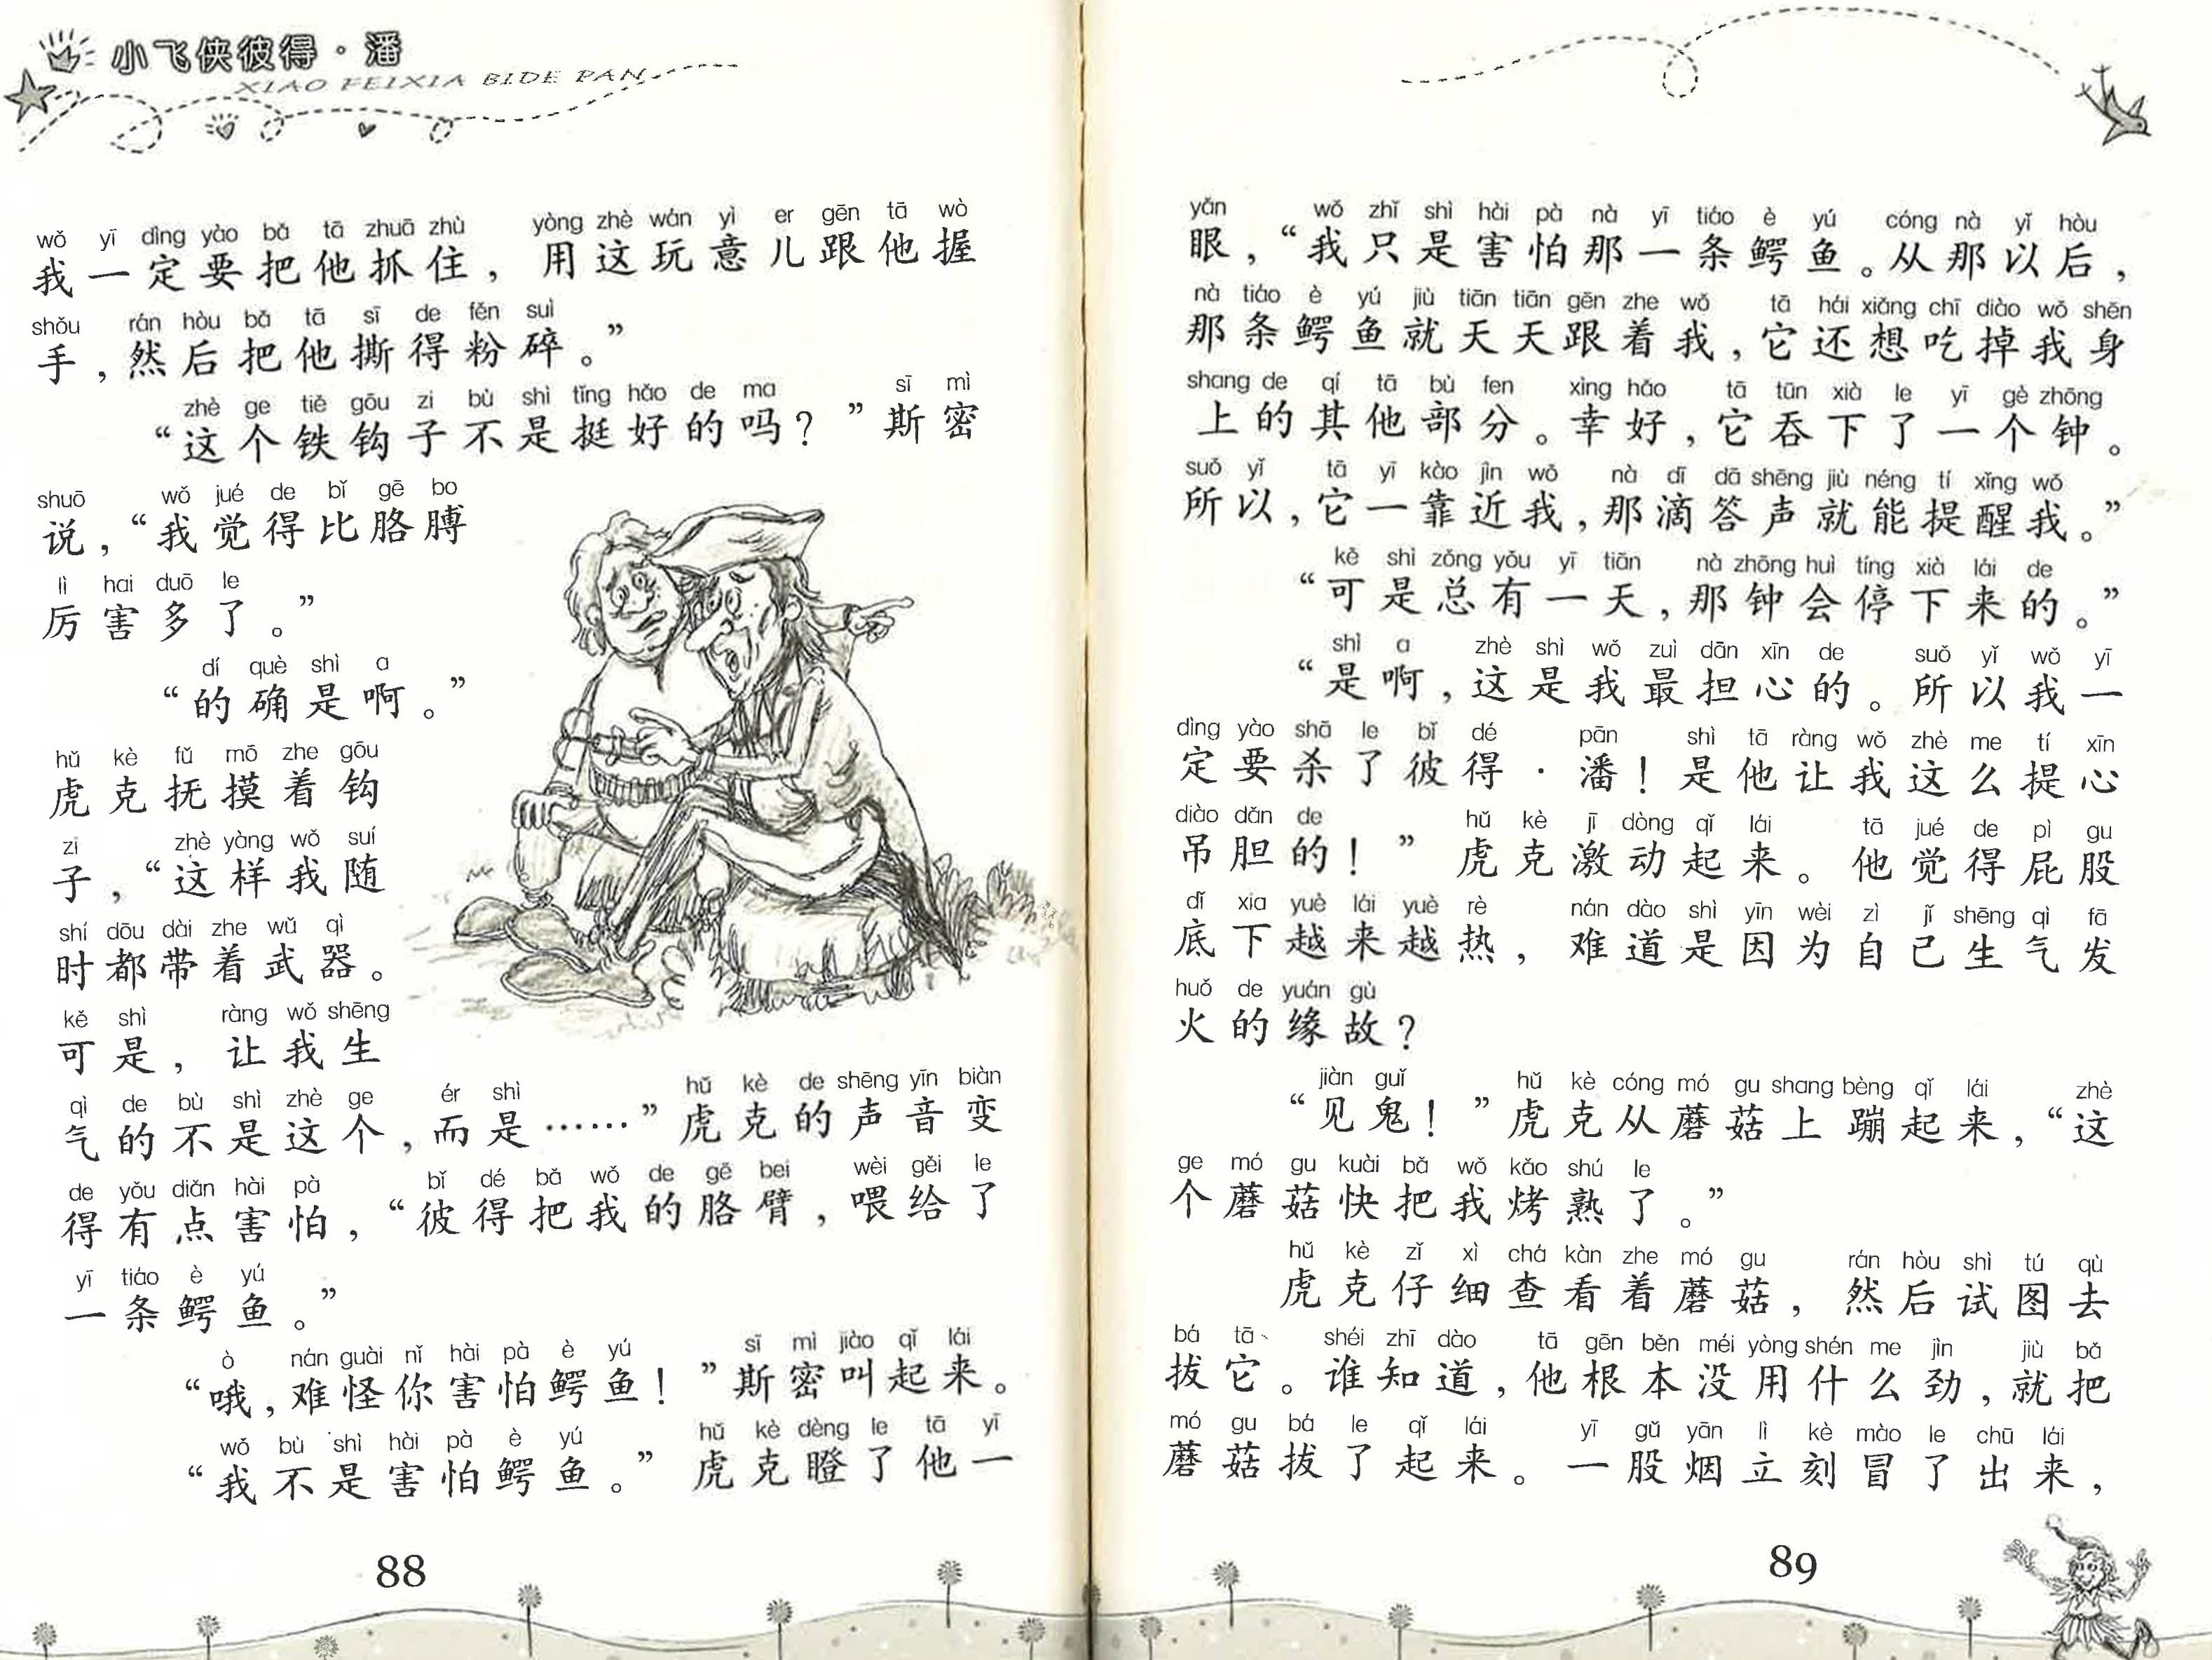 小飞侠彼得·潘
XIAO FEIXIA BIDE PAN
wǒ yī dìng yào bǎ tā zhuā zhù yòng zhè wán yì er gēn tā wò
我一定要把他抓住，用这玩意儿跟他握
shǒu rán hòu bǎ tā sī de fěn suì
手，然后把他撕得粉碎。”
zhè ge tiě gōu zi bù shì tǐng hǎo de ma sī mì
“这个铁钩子不是挺好的吗？”斯密
shuō wǒ jué de bǐ gē bo
说，“我觉得比胳膊
lì hai duō le
厉害多了。”
dí què shì a
“的确是啊。”
hǔ kè fǔ mō zhe gōu
虎克抚摸着钩
zi zhè yàng wǒ suí
子，“这样我随
shí dōu dài zhe wǔ qì
时都带着武器。
kě shì ràng wǒ shēng
可是，让我生
qì de bù shì zhè ge ér shì hǔ kè de shēng yīn biàn
气的不是这个，而是……”虎克的声音变
de yǒu diǎn hài pà bǐ dé bǎ wǒ de gē bei wèi gěi le
得有点害怕，“彼得把我的胳臂，喂给了
yī tiáo è yú
一条鳄鱼。”
ò nán guài nǐ hài pà è yú sī mì jiào qǐ lái
“哦，难怪你害怕鳄鱼！”斯密叫起来。
wǒ bù shì hài pà è yú hǔ kè dèng le tā yī
“我不是害怕鳄鱼。”虎克瞪了他一
88
yǎn wǒ zhǐ shì hài pà nà yī tiáo è yú cóng nà yǐ hòu
眼，“我只是害怕那一条鳄鱼。从那以后，
nà tiáo è yú jiù tiān tiān gēn zhe wǒ tā hái xiǎng chī diào wǒ shēn
那条鳄鱼就天天跟着我，它还想吃掉我身
shang de qí tā bù fen xìng hǎo tā tūn xià le yī gè zhōng
上的其他部分。幸好，它吞下了一个钟。
suǒ yǐ tā yī kào jìn wǒ nà dī dā shēng jiù néng tí xǐng wǒ
所以，它一靠近我，那滴答声就能提醒我。”
kě shì zǒng yǒu yī tiān nà zhōng huì tíng xià lái de
“可是总有一天，那钟会停下来的。”
shì a zhè shì wǒ zuì dān xīn de suǒ yǐ wǒ yī
“是啊，这是我最担心的。所以我一
dìng yào shā le bǐ dé pān shì tā ràng wǒ zhè me tí xīn
定要杀了彼得·潘！是他让我这么提心
diào dǎn de hǔ kè jī dòng qǐ lái tā jué de pì gu
吊胆的！”虎克激动起来。他觉得屁股
dǐ xia yuè lái yuè rè nán dào shì yīn wèi zì jǐ shēng qì fā
底下越来越热，难道是因为自己生气发
huǒ de yuán gù
火的缘故？
jiàn guǐ hǔ kè cóng mó gu shang bèng qǐ lái zhè
“见鬼！”虎克从蘑菇上蹦起来，“这
ge mó gu kuài bǎ wǒ kǎo shú le
个蘑菇快把我烤熟了。”
hǔ kè zǐ xì chá kàn zhe mó gu rán hòu shì tú qù
虎克仔细查看着蘑菇，然后试图去
bá tā shéi zhī dào tā gēn běn méi yòng shén me jìn jiù bǎ
拔它。谁知道，他根本没用什么劲，就把
mó gu bá le qǐ lái yī gǔ yān lì kè mào le chū lái
蘑菇拔了起来。一股烟立刻冒了出来，
89